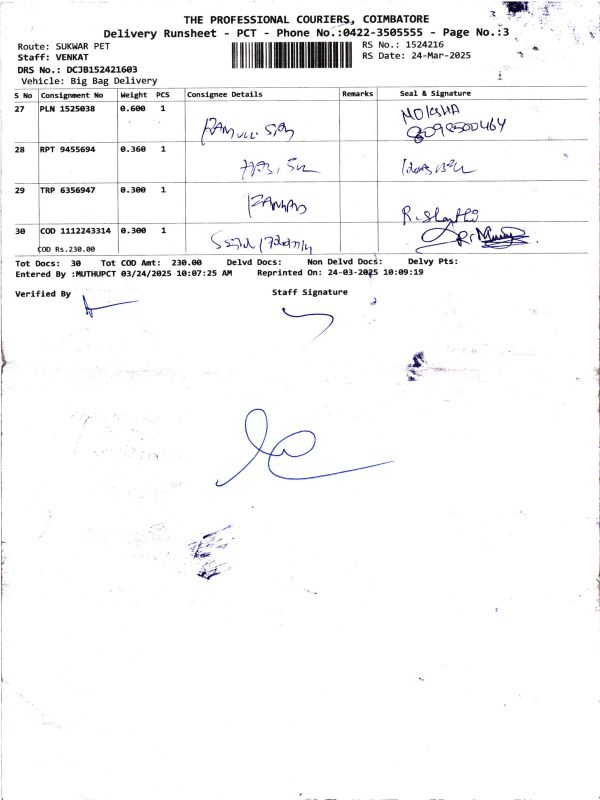 THE PROFESSIONAL COURIERS, COIMBATORE
Delivery Runsheet - PCT - Phone No.:0422-3505555 - Page No.:3
Route: SUKWAR PET
RS No.: 1524216
Staff: VENKAT
RS Date: 24-Mar-2025
DRS No.: DCJB152421603
Vehicle: Big Bag Delivery
S No Consignment No Weight PCS Consignee Details Remarks Seal & Signature
27 PLN 1525038 0.600 1 MOKSHA
28 RPT 9455694 0.360 1
29 TRP 6356947 0.300 1
30 COD 1112243314 0.300 1
COD Rs.230.00
Tot Docs: 30 Tot COD Amt: 230.00 Delvd Docs: Non Delvd Docs: Delvy Pts:
Entered By :MUTHUPCT 03/24/2025 10:07:25 AM Reprinted On: 24-03-2025 10:09:19
Verified By Staff Signature